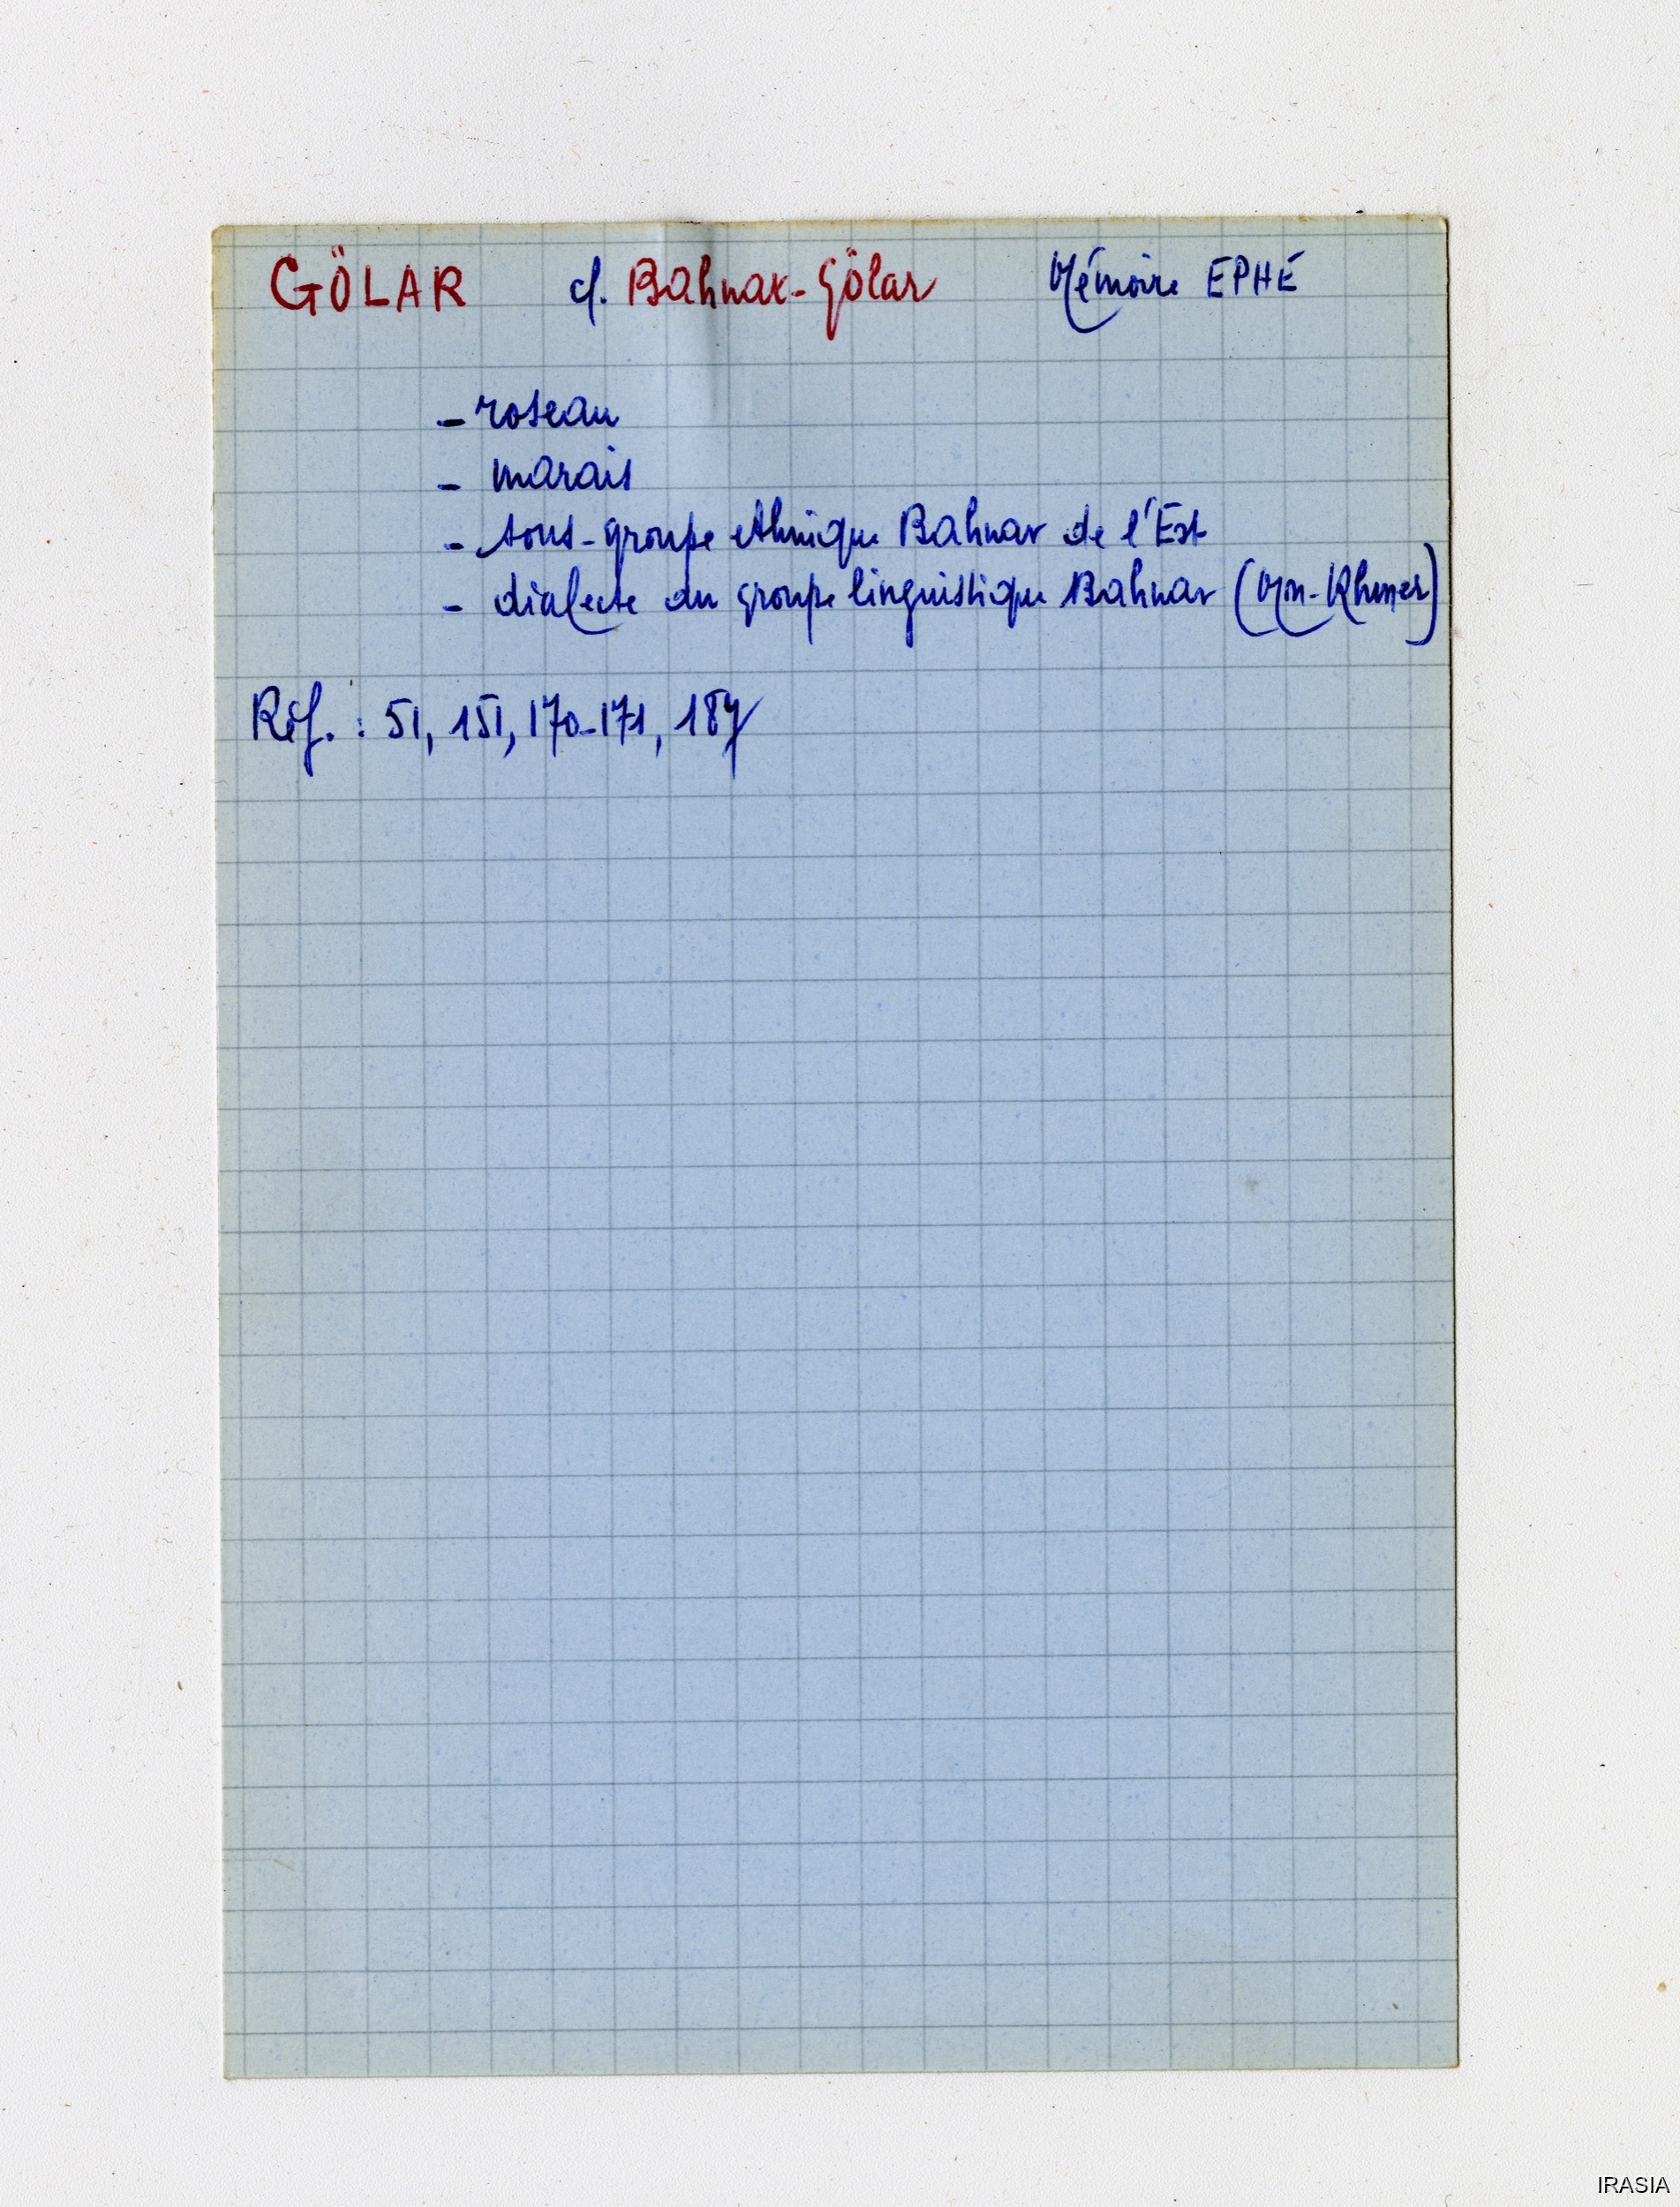 GÖLAR cf. Bahnar-Gölar Mémoire EPHE
- roseau
- marais
- sous-groupe ethnique Bahnar de l'Est
- dialecte du groupe linguistique Bahnar (Môn-Khmer)
Réf. : 51, 151, 170-171, 187
IRASIA